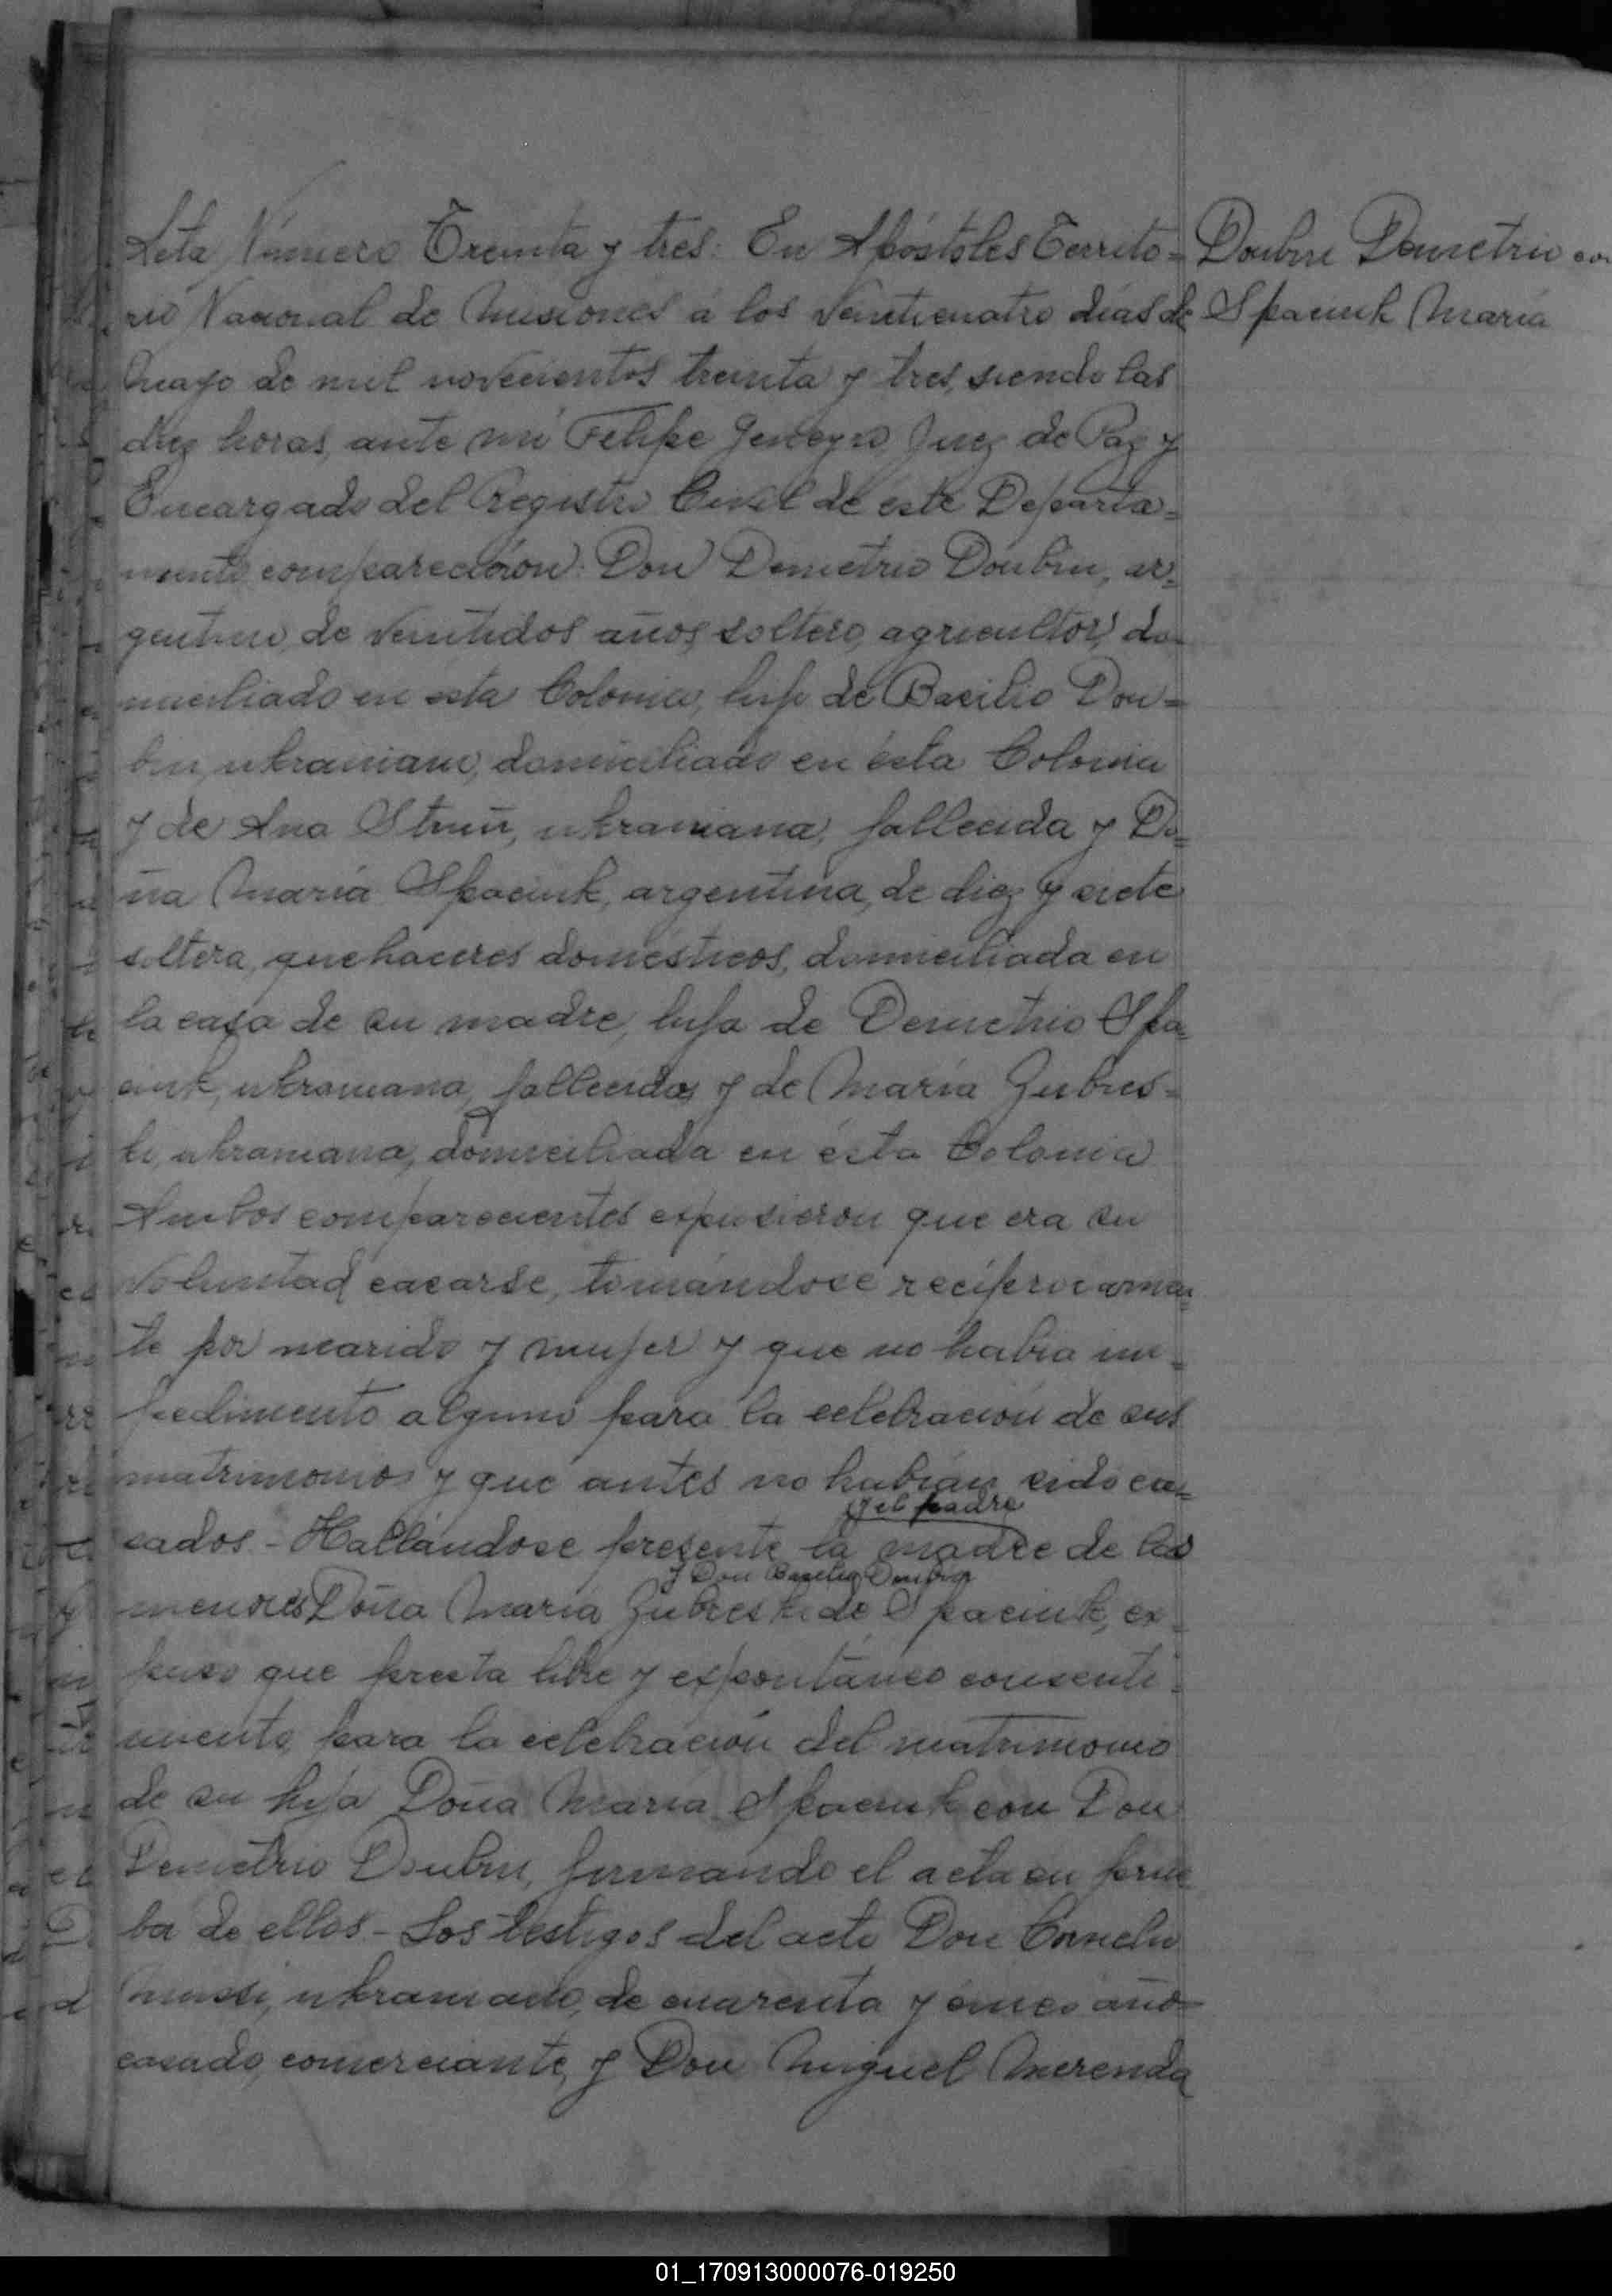 Acta Número Treinta y tres: En Apóstoles Territo=
rio Nacional de Misiones á los veinticuatro dias de
Mayo de mil novecientos treinta y tres, siendo las
diez horas, ante mi Felipe Geneyro Juez de Paz y
Encargado del Registro Civil de éste Departa=
mento comparecieron: Don Demetrio Doubñu, ar=
gentino, de veintidos años, soltero, agricultor, do=
miciliado en esta Colonia, hijo de Basilio Dou=
bñu, ukraniano, domiciliado en ésta Colonia
y de Ana ukraniana, fallecida y Do=
ña María Spaciuk, argentina, de diez y siete
soltera, quehaceres domésticos, domiciliada en
la casa de su madre, hija de Demetrio Spa=
ciuk, ukraniano, fallecido, y de María Zubres=
ki, ukraniana, domiciliada en ésta Colonia
Ambos comparecientes expusieron que era su
voluntad casarse, tomándose recíprocamen=
te por marido y mujer y que no habia im=
pedimento alguno para la celebración de sus
matrimonios y que antes no habían sido ca=
sados - Hallándose presente la madre de los
y el padre
menores Doña María Zubreski de Spaciuk, ex=
y Don Basilio Doubñu
puso que presta libre y espontáneo consenti=
miento para la celebración del matrimonio
de su hija Doña María Spaciuk con Don
Demetrio Doubñu, firmando el acta en prue
ba de ellos - Los testigos del acto Don Cornelio
ukraniano, de cuarenta y cinco año=
casado, comerciante, y Don Miguel Merenda
Doubñu Demetrio con
Spaciuk María
01_170913000076-019250